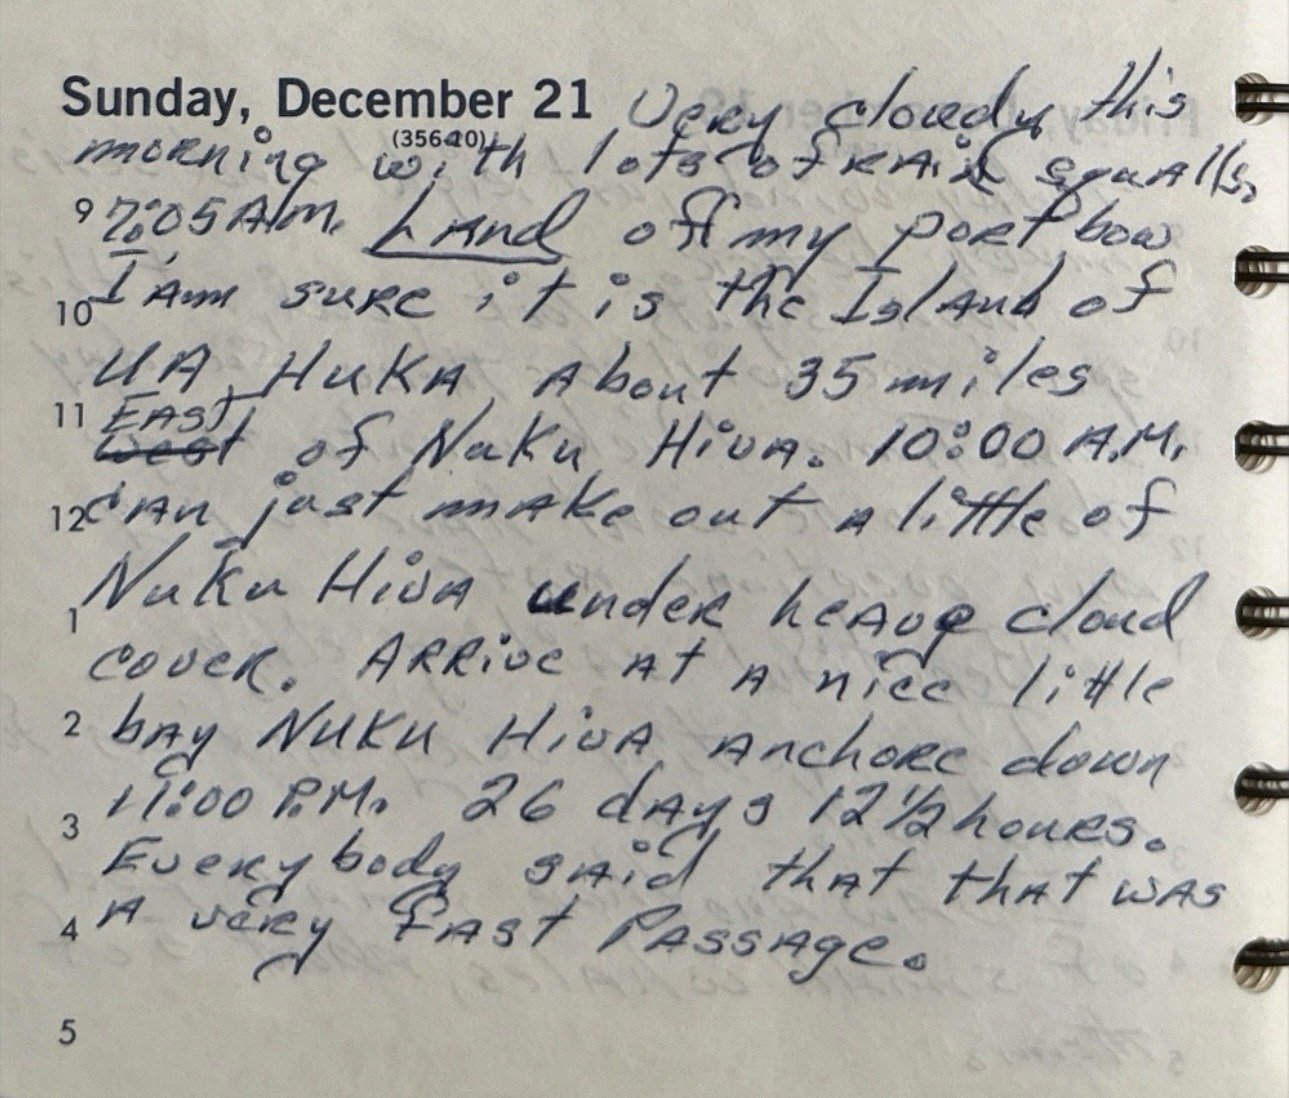 Sunday, December 21 Very cloudy this
(356-10)
morning with lots of rain squalls,
9 7:05 A.M. Land off my port bow
10 I'am sure it is the Island of
UA HUKA About 35 miles
11 EAST
west of Nuku Hiva. 10:00 A.M.
12 can just make out a little of
Nuku Hiva under heavy cloud
1
cover. ARRive at a nice little
2 bay NUKU HivA anchore down
11:00 P.M. 26 days 12 1/2 hours.
3
Everybody said that that was
4 a very fast Passage.
5